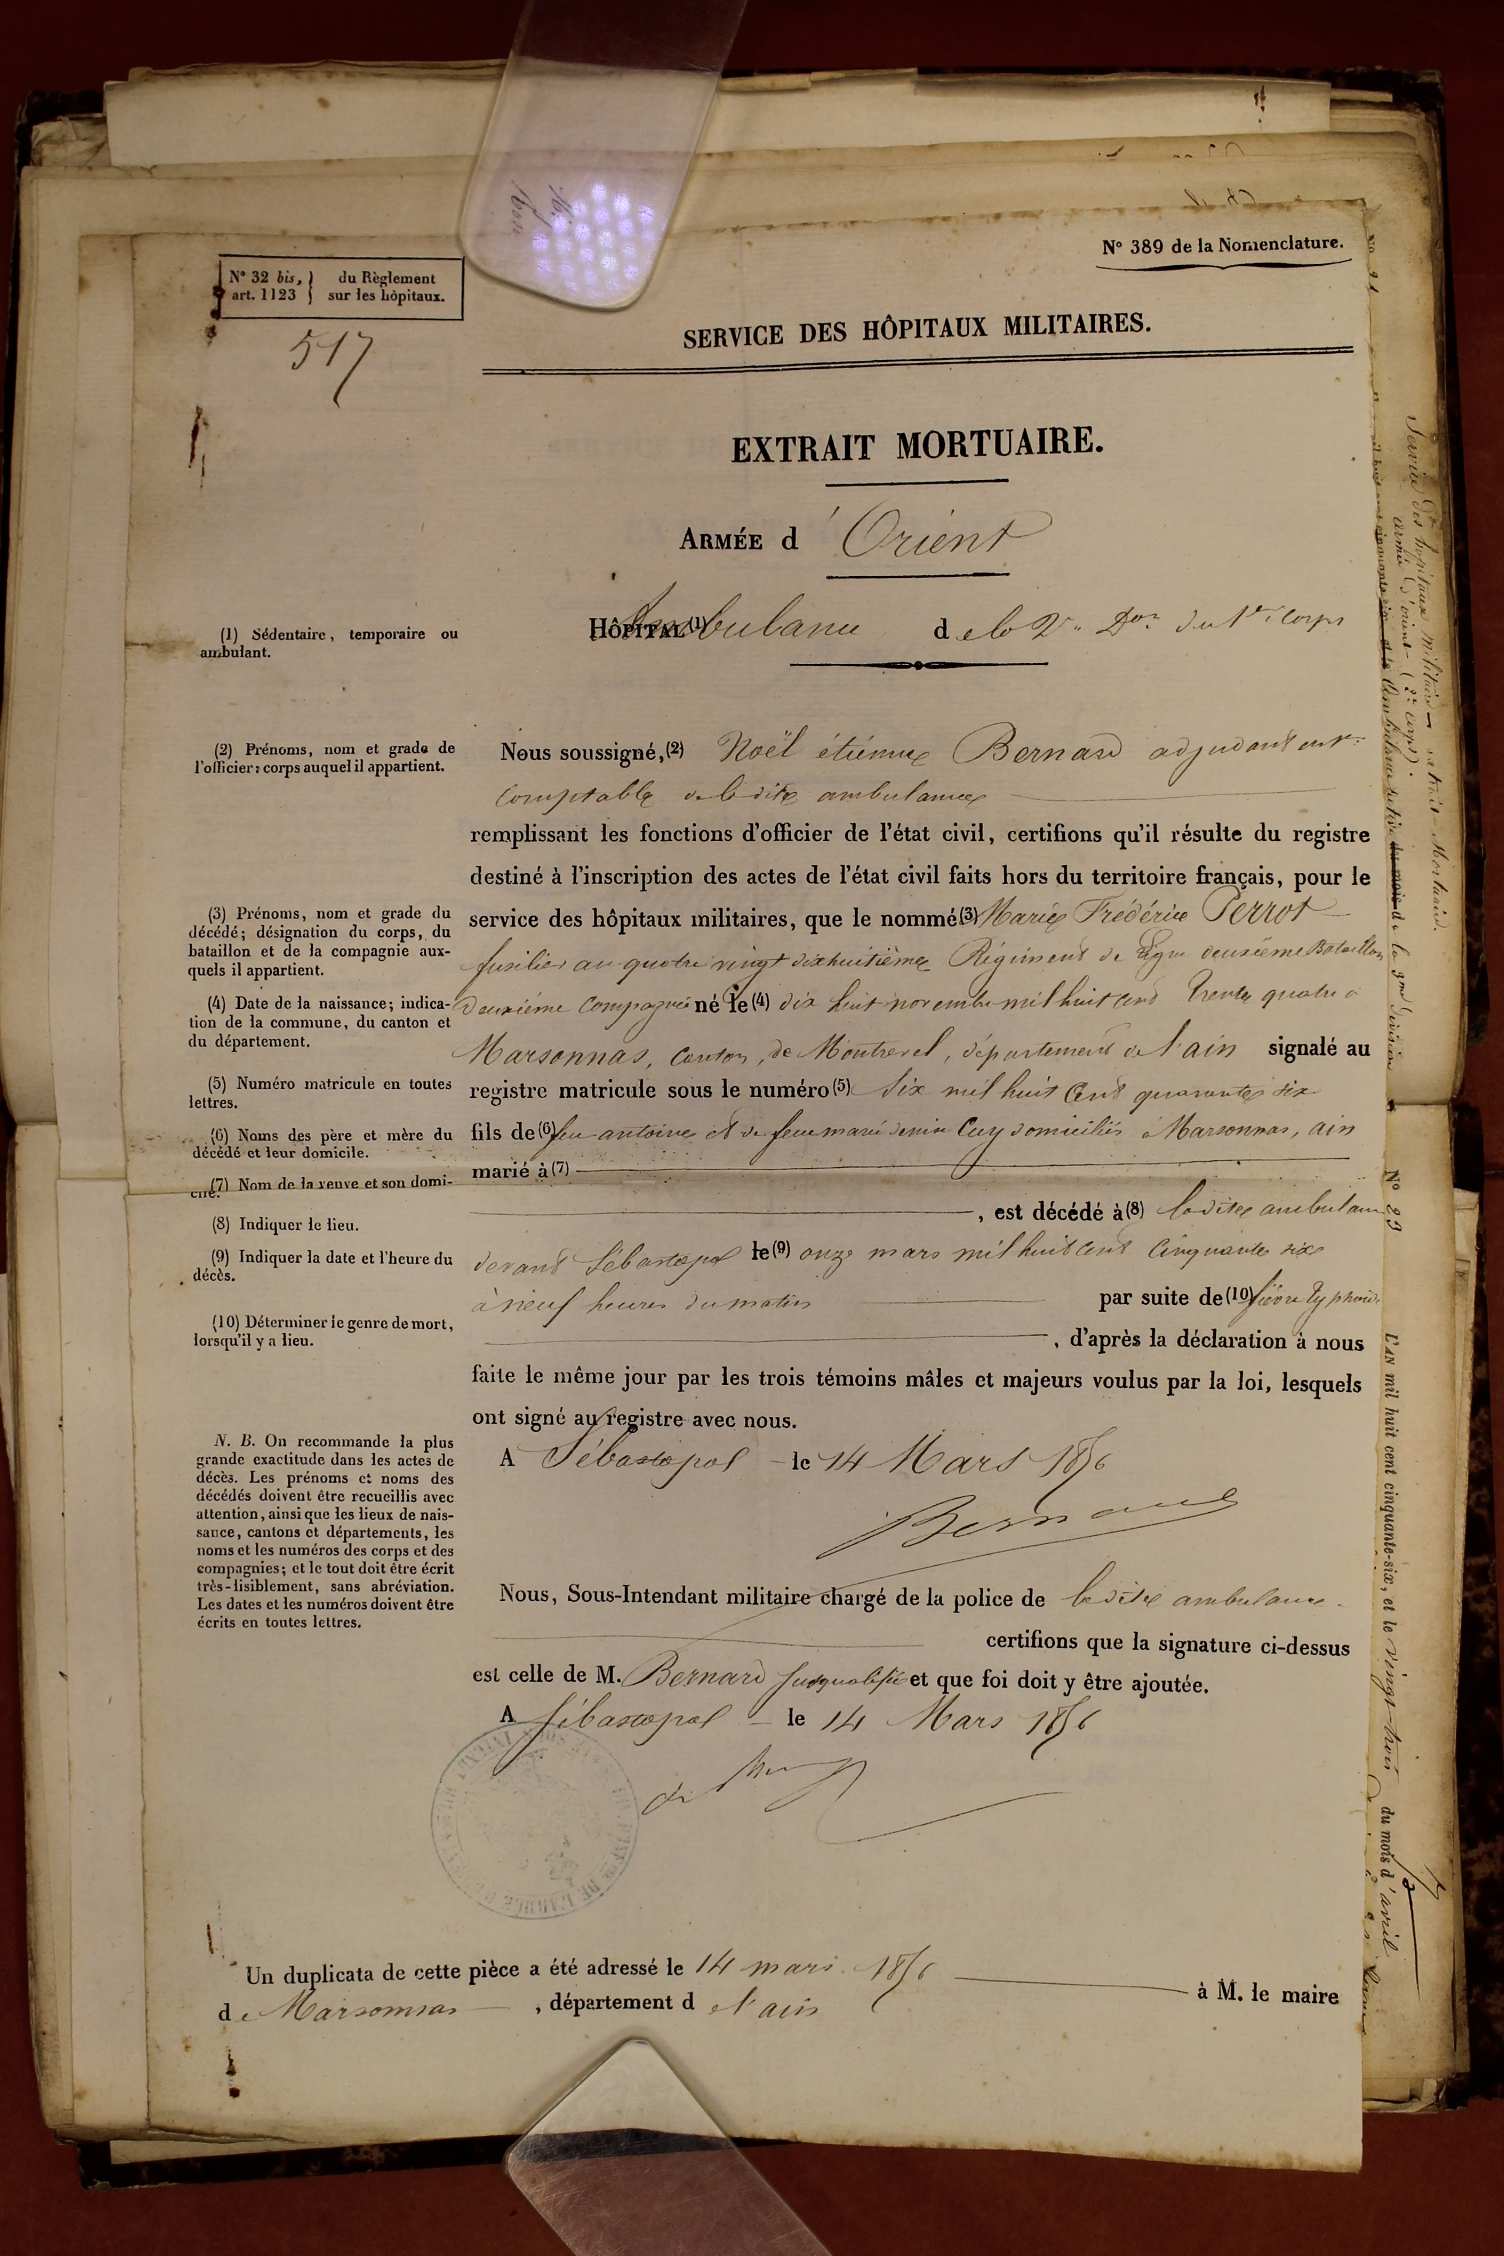 N° 389 de la Nomenclature.
N° 32 bis, du Règlement
art. 1123 sur les hôpitaux.
517
SERVICE DES HÔPITAUX MILITAIRES.
EXTRAIT MORTUAIRE.
ARMÉE d'Orient
HÔPITAL (1) Ambulance de la 2e Don du 1er Corps
(1) Sédentaire, temporaire ou
ambulant.
(2) Prénoms, nom et grade de
l'officier: corps auquel il appartient.
Nous soussigné, (2) Noël étienne Bernard adjudant en
comptable de ladite ambulance
remplissant les fonctions d'officier de l'état civil, certifions qu'il résulte du registre
destiné à l'inscription des actes de l'état civil faits hors du territoire français, pour le
service des hôpitaux militaires, que le nommé (3) Marie Frédéric Perrot
fusilier au quatre vingt dix huitième Régiment de Ligne deuxième Bataillon
deuxième Compagnie né le (4) dix huit novembre mil huit cent trente quatre à
Marsonnas, canton de Montrevel, département de l'ain signalé au
registre matricule sous le numéro (5) Six mil huit Cent quarante six
fils de (6) feu antoine et de feue marie Cuy domiciliés à Marsonnas, ain
marié à (7)
, est décédé à (8) ladite ambulance
devant Sébastopol le (9) onze mars mil huit Cent Cinquante six
à neuf heures du matin par suite de (10) fièvre typhoïde
, d'après la déclaration à nous
faite le même jour par les trois témoins mâles et majeurs voulus par la loi, lesquels
ont signé au registre avec nous.
A Sébastopol le 14 Mars 1856
Bernard
(3) Prénoms, nom et grade du
décédé; désignation du corps, du
bataillon et de la compagnie aux-
quels il appartient.
(4) Date de la naissance; indica-
tion de la commune, du canton et
du département.
(5) Numéro matricule en toutes
lettres.
(6) Noms des père et mère du
décédé et leur domicile.
(7) Nom de la veuve et son domi-
cile.
(8) Indiquer le lieu.
(9) Indiquer la date et l'heure du
décès.
(10) Déterminer le genre de mort,
lorsqu'il y a lieu.
N. B. On recommande la plus
grande exactitude dans les actes de
décès. Les prénoms et noms des
décédés doivent être recueillis avec
attention, ainsi que les lieux de nais-
sance, cantons et départements, les
noms et les numéros des corps et des
compagnies; et le tout doit être écrit
très-lisiblement, sans abréviation.
Les dates et les numéros doivent être
écrits en toutes lettres.
Nous, Sous-Intendant militaire chargé de la police de ladite ambulance
certifions que la signature ci-dessus
est celle de M. Bernard susqualifié et que foi doit y être ajoutée.
A Sébastopol le 14 Mars 1856
Un duplicata de cette pièce a été adressé le 14 mars 1856 à M. le maire
de Marsonnas, département de l'ain
Service des hôpitaux militaires extrait Mortuaire.
armée d'orient (2e corps).
N° 29
L'AN mil huit cent cinquante-six, et le vingt-trois du mois d'avril